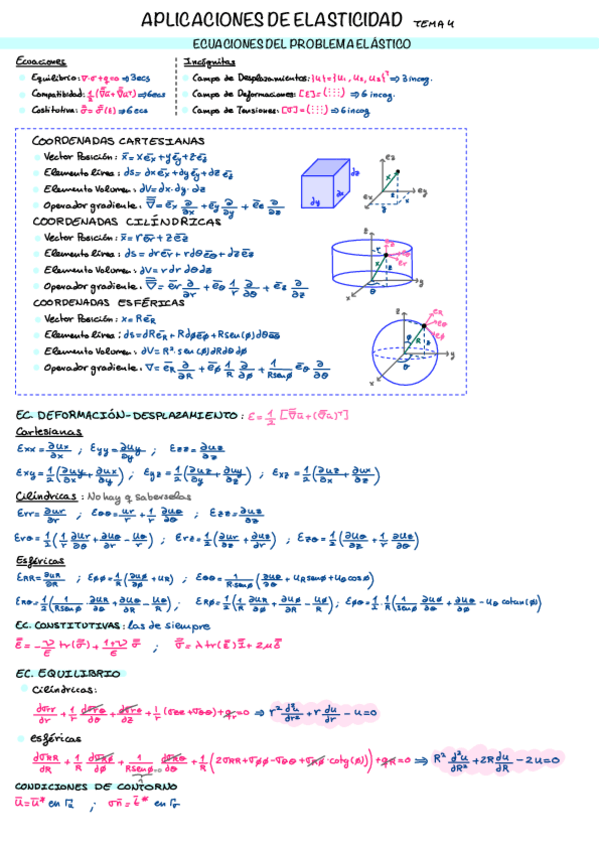 APLICACIONES DE ELASTICIDAD TEMA 4
ECUACIONES DEL PROBLEMA ELÁSTICO
Ecuaciones
Equilibrio: ∇·σ+q=0 ⇒ 3ecs
Compatibilidad: 1/2(∇ū+∇ūᵀ) ⇒ 6ecs
Costitutiva: σ̿=σ̿(ε) ⇒ 6ecs
Incógnitas
Campo de Desplazamientos: |u|={u₁, u₂, u₃}ᵀ ⇒ 3 incog.
Campo de Deformaciones: [ε]=(⋮⋮⋮) ⇒ 6 incog.
Campo de Tensiones: [σ]=(⋮⋮⋮) ⇒ 6 incog
COORDENADAS CARTESIANAS
Vector Posición: x̄=xēx+yēy+zēz
Elemento línea: ds=dxēx+dyēy+dzēz
Elemento Volumen: dV=dx·dy·dz
Operador gradiente: ∇=ēx ∂/∂x+ēy ∂/∂y+ēz ∂/∂z
dz
dx
dy
ez
ex
ey
COORDENADAS CILÍNDRICAS
Vector Posición: x̄=rēr+zēz
Elemento línea: ds=drēr+rdθēθ+dzēz
Elemento Volumen: dV=r dr dθ dz
Operador gradiente: ∇=ēr ∂/∂r+ēθ 1/r ∂/∂θ+ēz ∂/∂z
z
x
y
θ
COORDENADAS ESFÉRICAS
Vector Posición: x=RēR
Elemento línea: ds=dRēR+Rdϕēϕ+Rsen(ϕ)dθēθ
Elemento Volumen: dV=R²·sen(ϕ)dRdθdϕ
Operador gradiente: ∇=ēR ∂/∂R+ēϕ 1/R ∂/∂ϕ+1/Rsenϕ ēθ ∂/∂θ
z
eR
eθ
eϕ
R
y
x
θ
EC. DEFORMACIÓN-DESPLAZAMIENTO: ε=1/2[∇ū+(∇ū)ᵀ]
Cartesianas
εxx=∂ux/∂x ; εyy=∂uy/∂y ; εzz=∂uz/∂z
εxy=1/2(∂uy/∂x+∂ux/∂y) ; εyz=1/2(∂uz/∂y+∂uy/∂z) ; εxz=1/2(∂uz/∂x+∂ux/∂z)
Cilíndricas: No hay q saberselas
εrr=∂ur/∂r ; εθθ=ur/r+1/r ∂uθ/∂θ ; εzz=∂uz/∂z
εrθ=1/2(1/r ∂ur/∂θ+∂uθ/∂r−uθ/r) ; εrz=1/2(∂uz/∂r+∂ur/∂z) ; εzθ=1/2(∂uθ/∂z+1/r ∂uz/∂θ)
Esféricas
εRR=∂uR/∂R ; εϕϕ=1/R(∂uϕ/∂ϕ+uR) ; εθθ=1/R·senϕ(∂uθ/∂θ+uRsenϕ+uϕcosϕ)
εRθ=1/2(1/Rsenϕ ∂uR/∂θ+∂uθ/∂R−uθ/R) ; εRϕ=1/2(1/R ∂uR/∂ϕ+∂uϕ/∂R−uϕ/R) ; εϕθ=1/2·1/R(1/senϕ ∂uϕ/∂θ+∂uθ/∂ϕ−uθ cotan(ϕ))
EC. CONSTITUTIVAS: las de siempre
ε̿=−ν/E tr(σ̿)+1+ν/E σ̿ ; σ̿=λtr(ε̿)I̿+2με̿
EC. EQUILIBRIO
Cilíndricas:
dσrr/dr+1/r dσrθ/dθ+dσrz/dz+1/r(σrr+σθθ)+qr=0 ⇒ r² d²u/dr²+r du/dr−u=0
esféricas
dσRR/dR+1/R dσRϕ/dϕ+1/Rsenϕ dσRθ/dθ+1/R(2σRR+σϕϕ−σθθ+σRϕ·cotg(ϕ))+qR=0 ⇒ R² d²u/dR²+2R du/dR−2u=0
CONDICIONES DE CONTORNO
ū=ū* en Γu ; σn̄=t̄* en Γσ